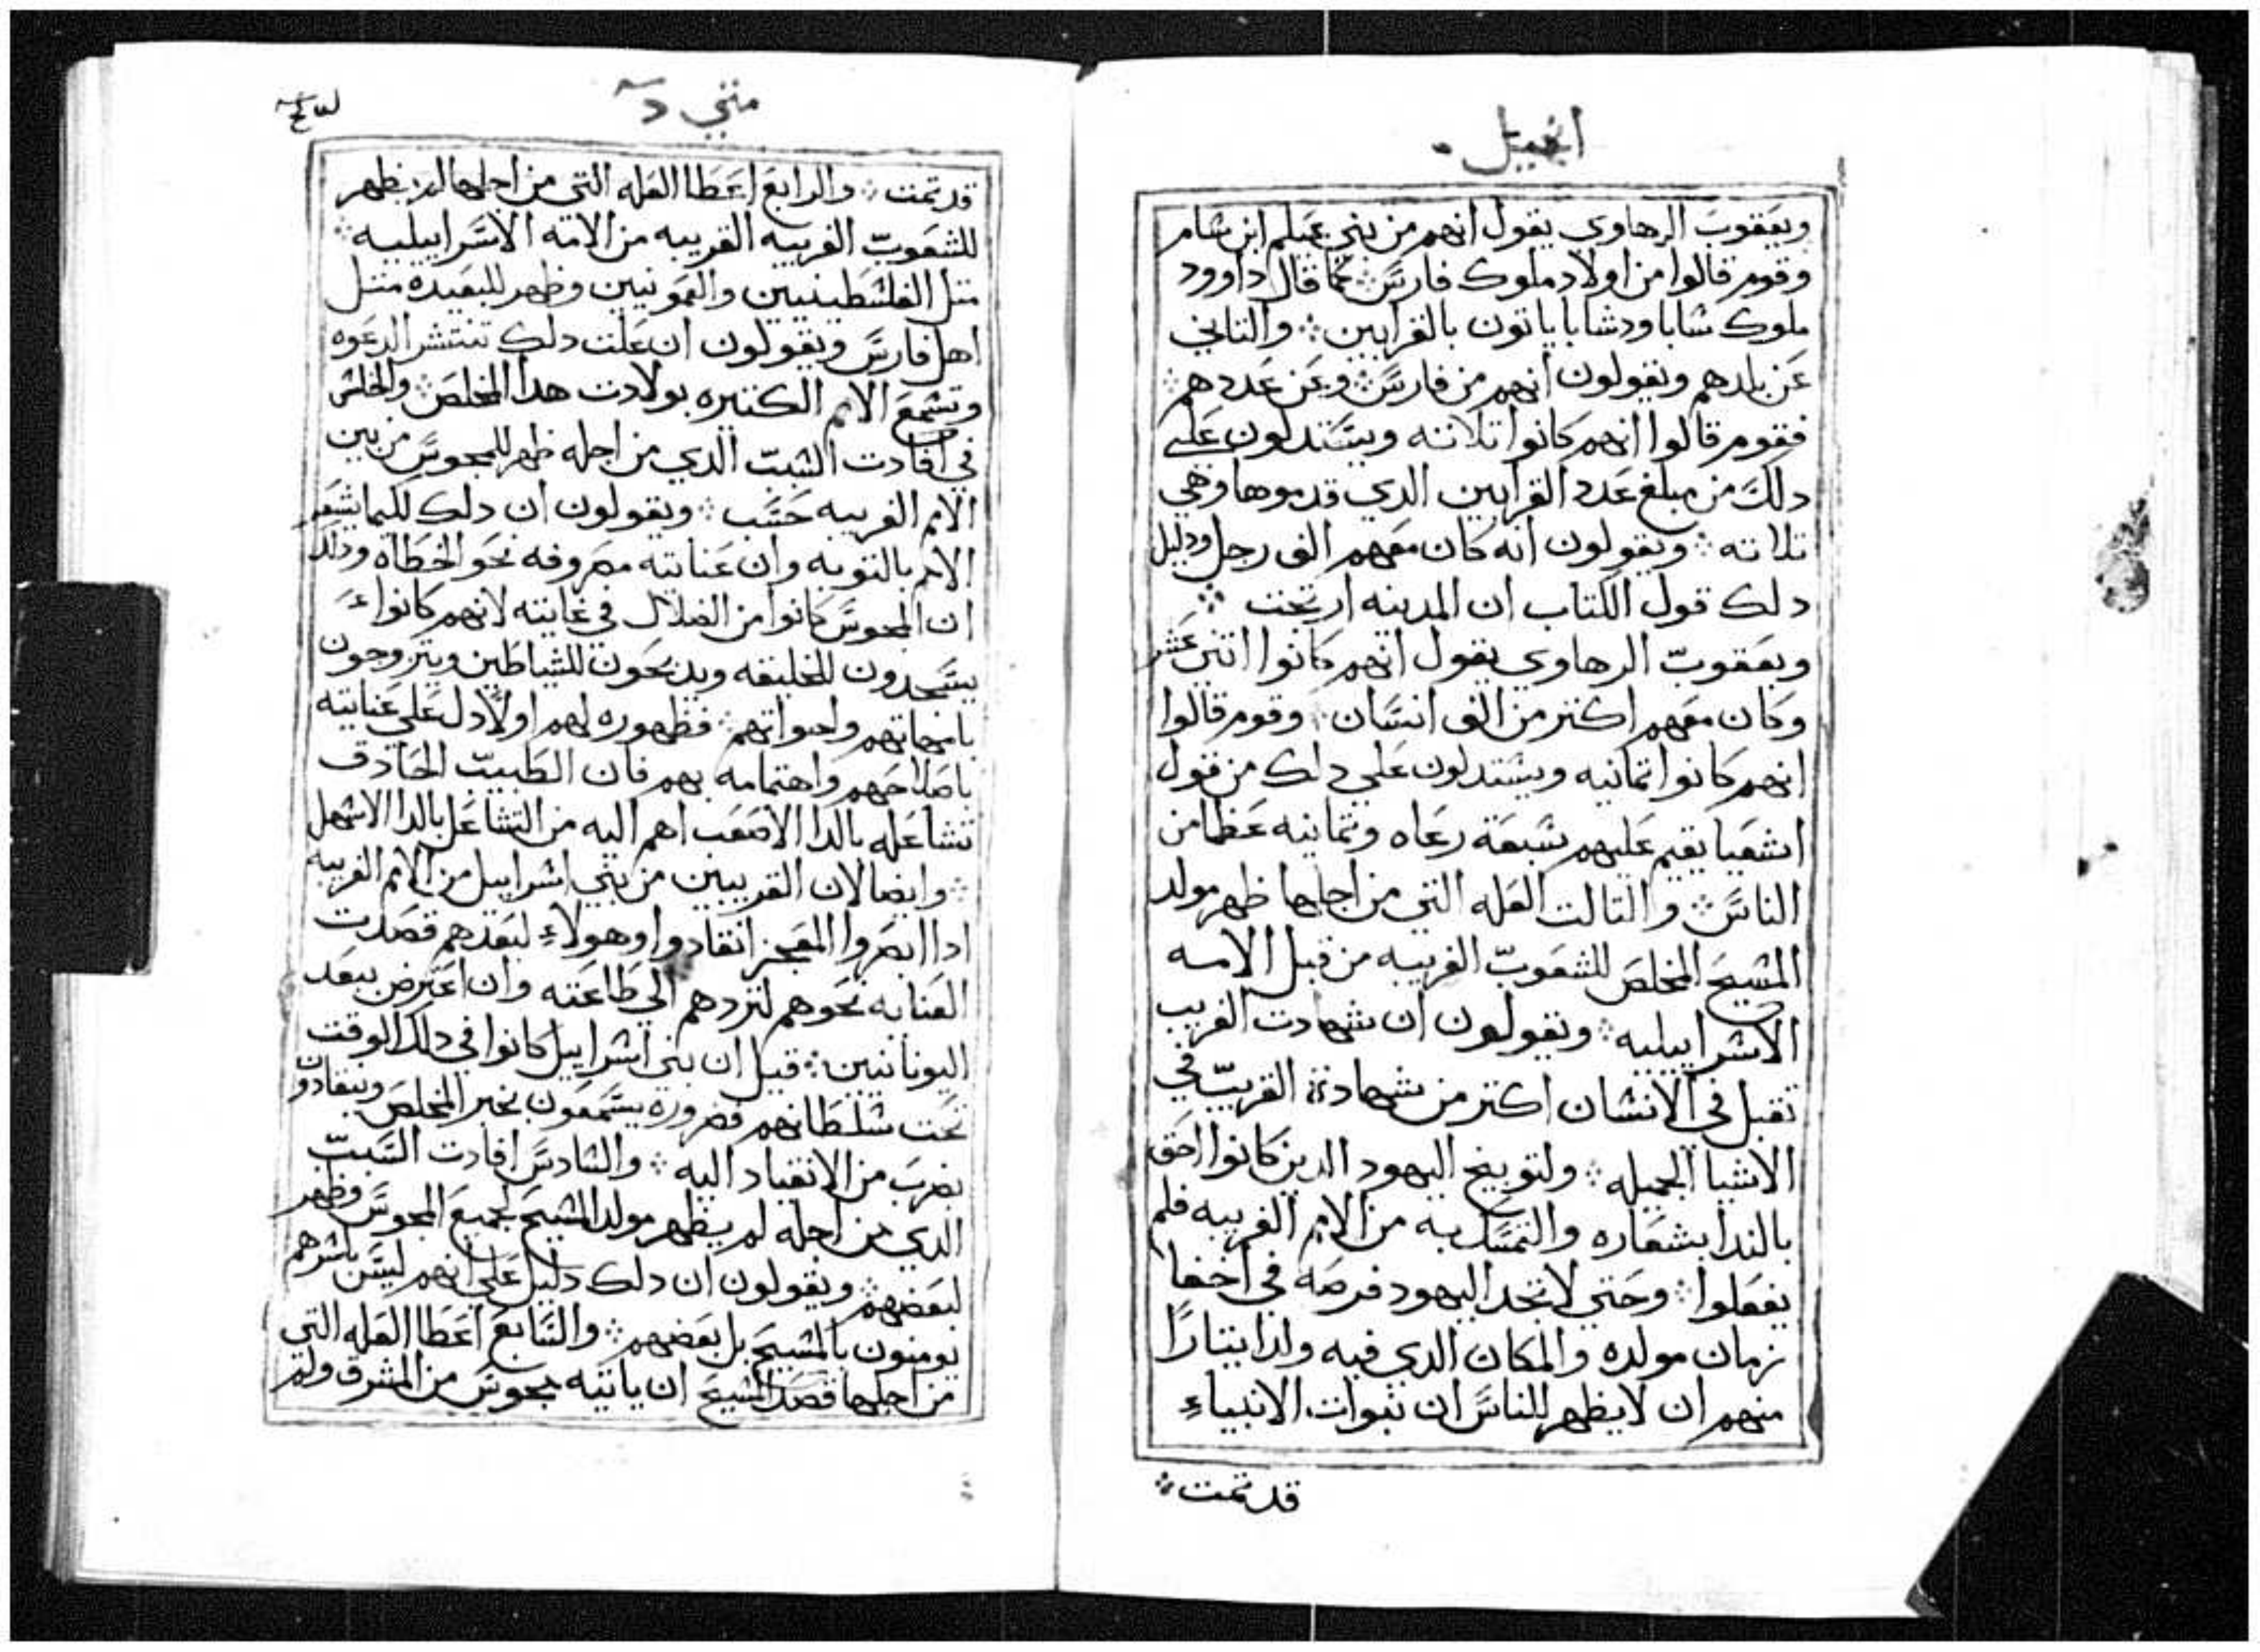 انجيل
ويعقوب الرهاوي يقول انهم من بني عيلم ابن شام
وقوم قالوا من اولاد ملوك فارس كما قال داوود
ملوك شابا ودشابا ياتون بالقرابين والتاني
عن بلدهم ويقولون انهم من فارس وعن عددهم
فقوم قالوا انهم كانوا تلاتته ويستدلون علي
دلك من مبلغ عدد القرابين الدي قدموها وهي
تلاته ويقولون انه كان معهم الف رجل ودليل
دلك قول الكتاب ان المدينه ارتجت
ويعقوب الرهاوي يقول انهم كانوا اتني عشر
وكان معهم اكتر من الف انسان وقوم قالوا
انهم كانوا تمانيه ويستدلون علي دلك من قول
اشعيا يقيم عليهم سبعة رعاه وتمانيه عظما من
الناس والتالت العله التي من اجلها ظهر مولد
المسيح المخلص للشعوب الغريبه من قبل الامه
الاسراييليه ويقولون ان شهادت الغريب
تقبل في الانسان اكتر من شهادة القريب في
الاشيا الجميله ولتوبيخ اليهود الدين كانوا احق
بالندا بشعاره والتمسك به من الامم الغريبه فلم
يفعلوا وحتي لا تجد اليهود فرصه في اخفا
زمان مولده والمكان الدي فيه ولدا يتارا
منهم ان لا يظهر للناس ان نبوات الانبياء
قد تمت
متي د
قد تمت والرابع اعطا العله التي من اجلها لم يظهر
للشعوب الغريبه القريبه من الامه الاسراييليه
متل الفلسطينيين والعمونيين وظهر للبعيده متل
اهل فارس ويقولون ان علت دلك تنتشر الدعوه
وتسمع الامم الكتيره بولادت هدا المخلص والخامس
في افادت السبب الدي من اجله ظهر للمجوس من بين
الامم الغريبه حسب ويقولون ان دلك لكيما يشعر
الامم بالتوبه وان عنايته مصروفه نحو الخطاه ودلك
ان المجوس كانوا من الضلال في غايته لانهم كانوا
يسجدون للخليقه ويدبحون للشياطين ويتزوجون
بامهاتهم واخواتهم فظهوره لهم اولا دل علي عنايته
باصلاحهم واهتمامه بهم فان الطبيب الحادق
تشاغله بالدا الاصعب اهم اليه من التشاغل بالدا الاسهل
وايضا لان القريبين من بني اسراييل من الامم الغريبه
ادا ابصروا المعجز انقادوا وهولاء لبعدهم قصدت
العنايه نحوهم لتردهم الي طاعته وان اعترض ببعد
اليونانيين قيل ان بني اسراييل كانوا في دلك الوقت
تحت سلطانهم فضروره يسمعون بخبر المخلص وينقادون
بضرب من الانقياد اليه والسادس افادت السبب
الدي من اجله لم يظهر مولد المسيح لجميع المجوس وظهر
لبعضهم ويقولون ان دلك دليل علي انهم ليس باسرهم
يومنون بالمسيح بل بعضهم والسابع اعطا العله التي
من اجلها قصد المسيح ان ياتيه مجوس من المشرق ولم